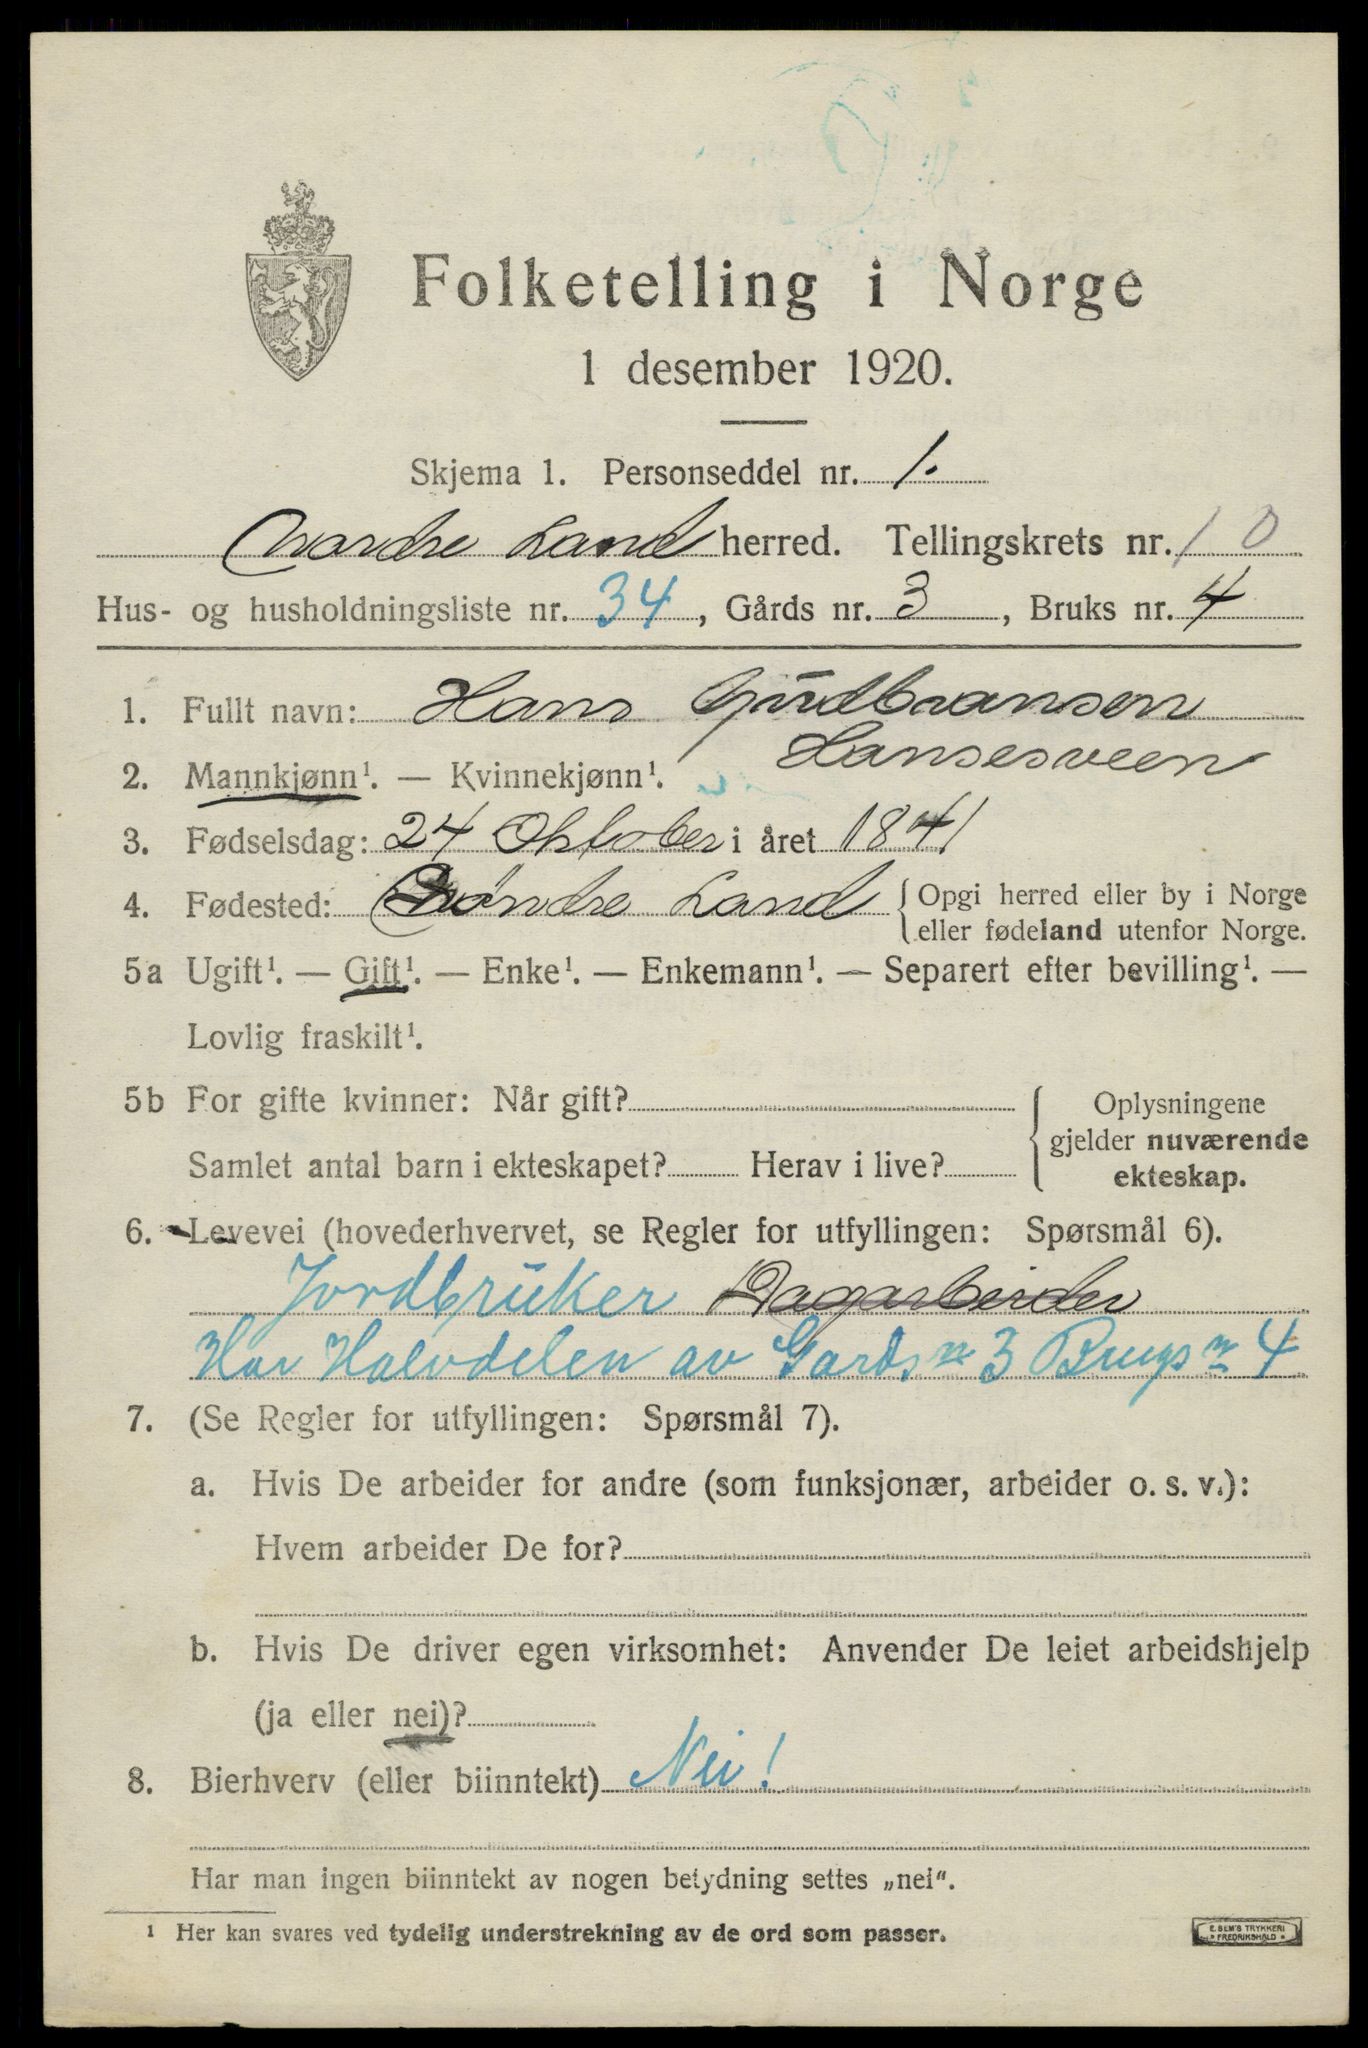 Folketelling i Norge
1 desember 1920.
Skjema 1. Personseddel nr. 1.
Nordre Land herred. Tellingskrets nr. 10
Hus- og husholdningsliste nr. 34, Gårds nr. 3, Bruks nr. 4
1. Fullt navn: Hans Gudbransen
Hansesveen
2. Mannkjønn¹. — Kvinnekjønn¹.
3. Fødselsdag: 24 Oktober i året 1841
4. Fødested: Søndre Land { Opgi herred eller by i Norge
eller fødeland utenfor Norge.
5a Ugift¹. — Gift¹. — Enke¹. — Enkemann¹. — Separert efter bevilling¹. —
Lovlig fraskilt¹.
5b For gifte kvinner: Når gift? { Oplysningene
gjelder nuværende
Samlet antal barn i ekteskapet? Herav i live? ekteskap.
6. Levevei (hovederhvervet, se Regler for utfyllingen: Spørsmål 6).
Jordbruker Dagarbeider
Har Halvdelen av Gards nr 3 Brugs nr 4
7. (Se Regler for utfyllingen: Spørsmål 7).
a. Hvis De arbeider for andre (som funksjonær, arbeider o. s. v.):
Hvem arbeider De for?
b. Hvis De driver egen virksomhet: Anvender De leiet arbeidshjelp
(ja eller nei)?
8. Bierhverv (eller biinntekt) Nei!
Har man ingen biinntekt av nogen betydning settes „nei“.
¹ Her kan svares ved tydelig understrekning av de ord som passer.
E. SEM'S TRYKKERI
FREDRIKSHALD